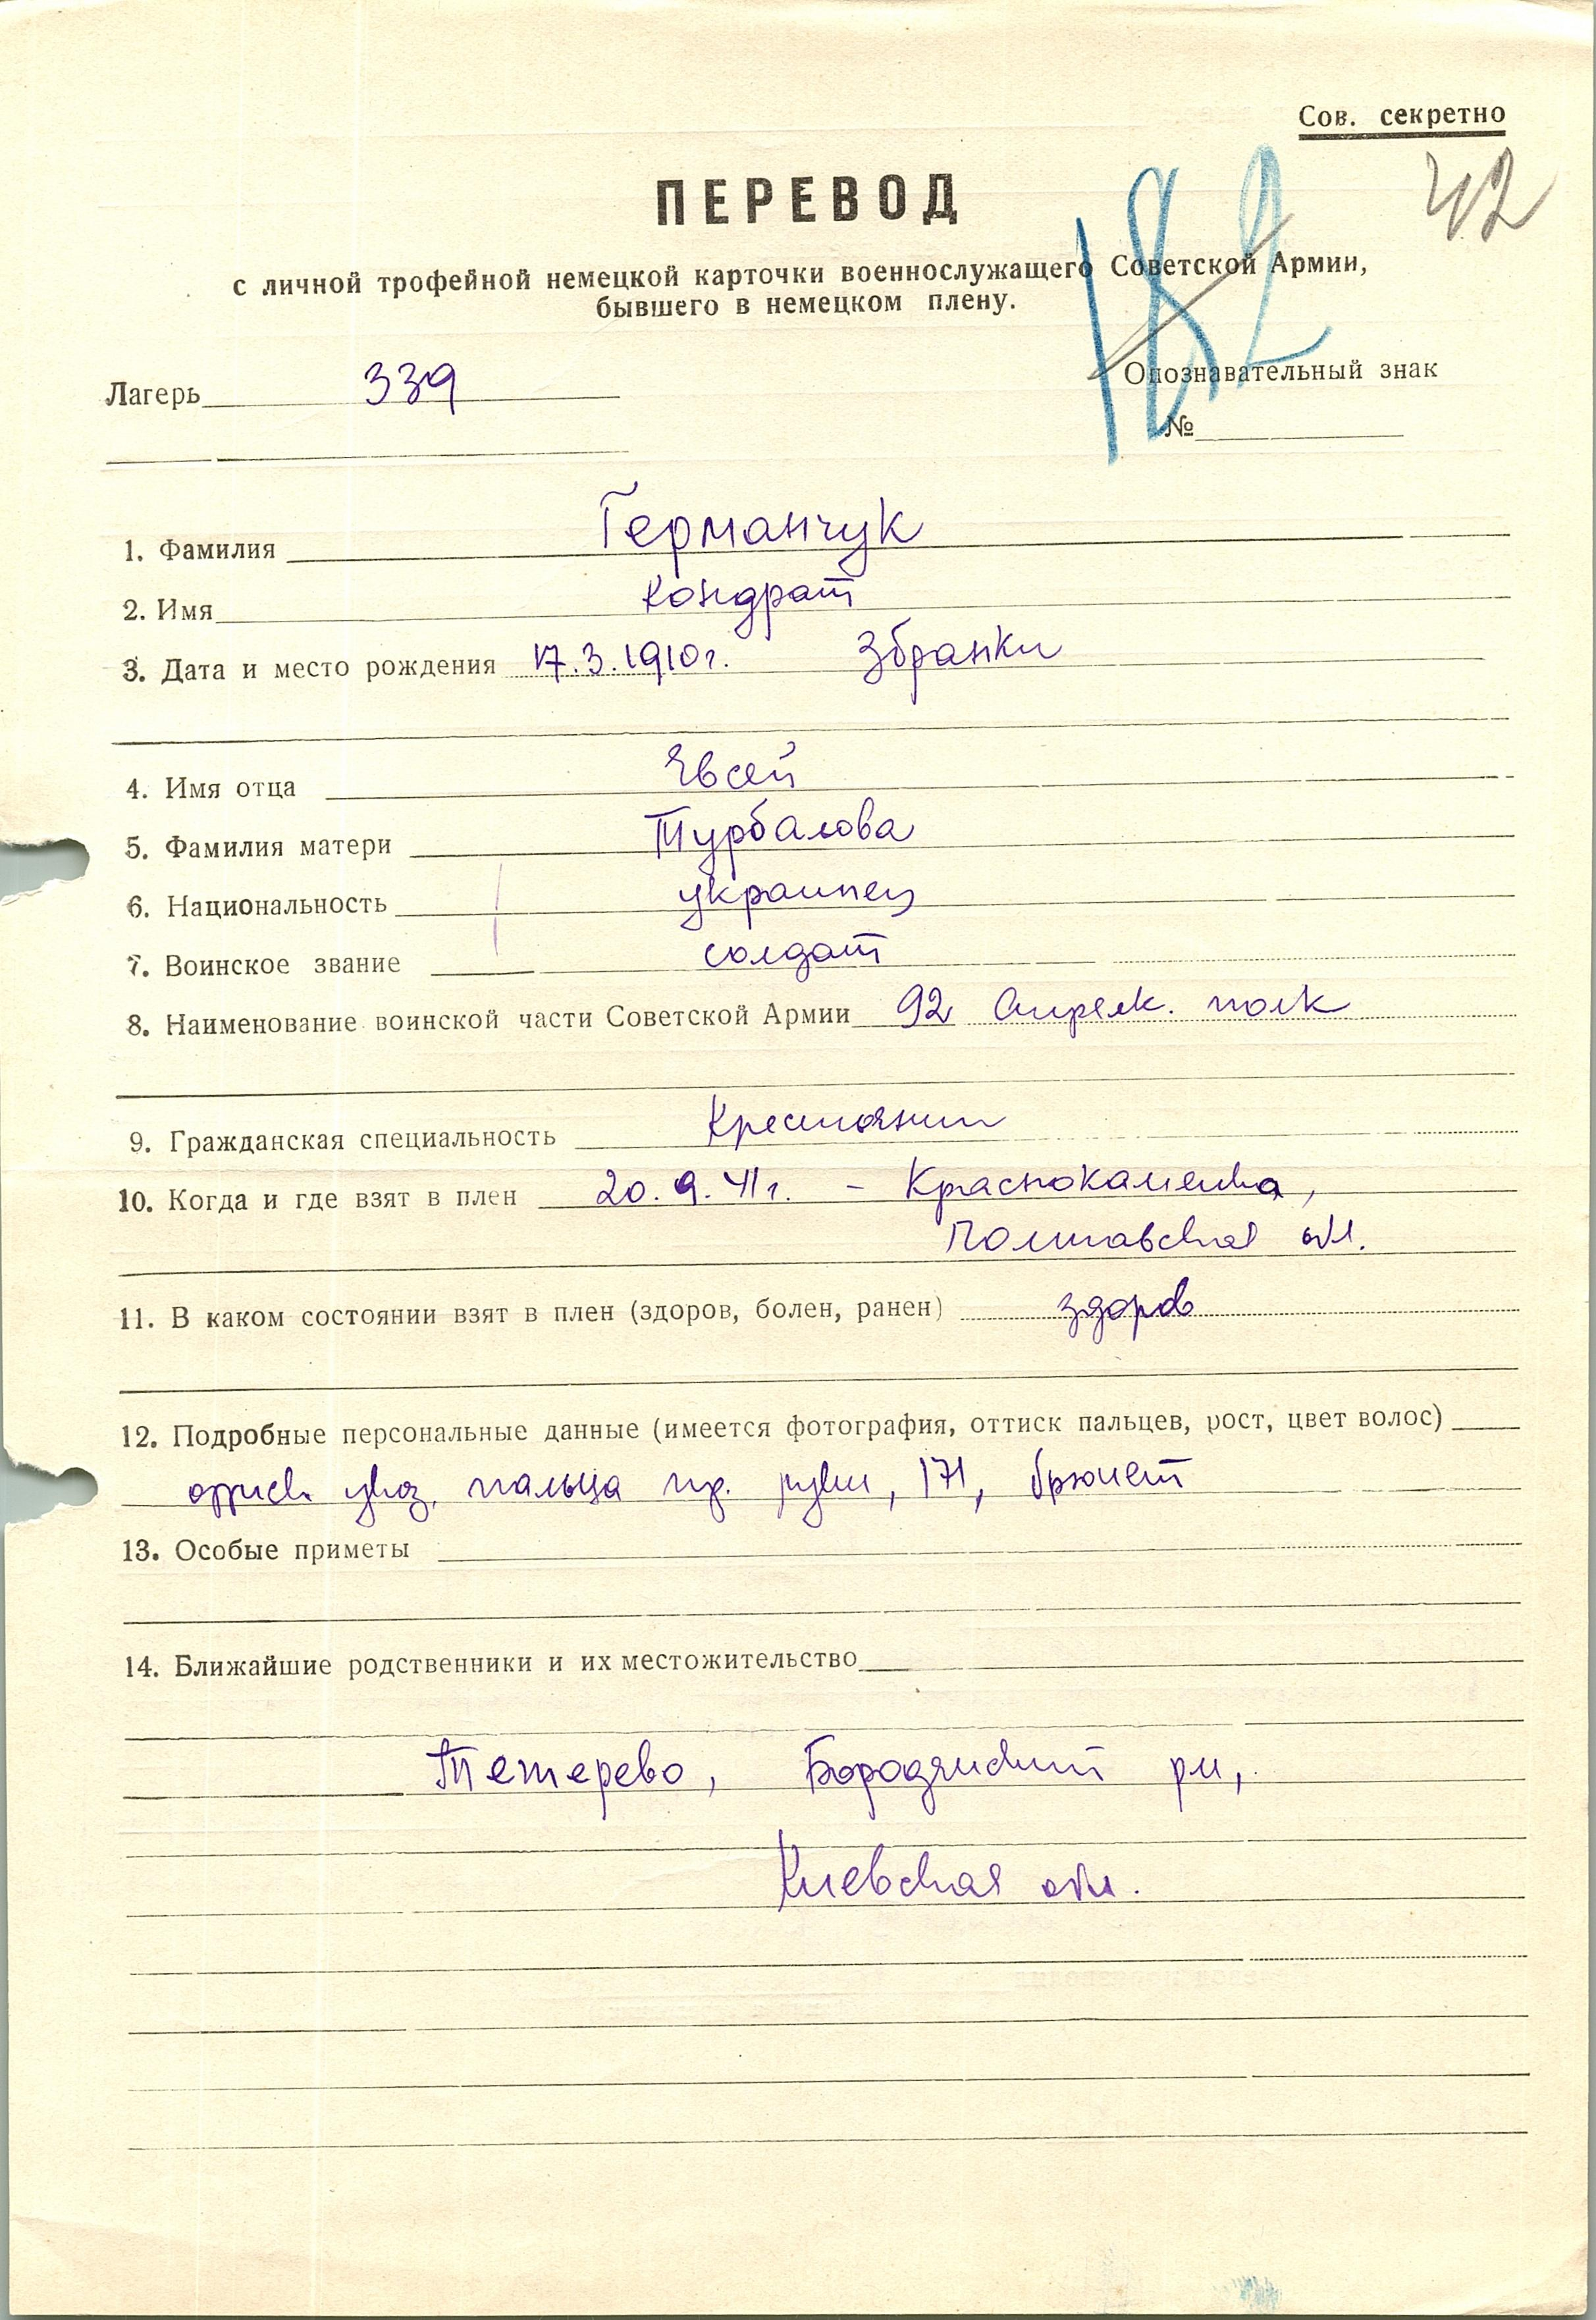 Сов. секретно
42
ПЕРЕВОД
182
с личной трофейной немецкой карточки военнослужащего Советской Армии,
бывшего в немецком плену.
Лагерь 339
Опознавательный знак
№
1. Фамилия Германчук
2. Имя Кондрат
3. Дата и место рождения 17.3.1910г. Збранки
4. Имя отца Евсей
5. Фамилия матери Турбалова
6. Национальность украинец
7. Воинское звание солдат
8. Наименование воинской части Советской Армии 92 Стрелк. полк
9. Гражданская специальность Крестьянин
10. Когда и где взят в плен 20.9.41г. - Краснокаменка,
Полтавская обл.
11. В каком состоянии взят в плен (здоров, болен, ранен) здоров
12. Подробные персональные данные (имеется фотография, оттиск пальцев, рост, цвет волос)
оттиск указ. пальца пр. руки, 171, брюнет
13. Особые приметы
14. Ближайшие родственники и их местожительство
Тетерево, Бородянский рн,
Киевская обл.